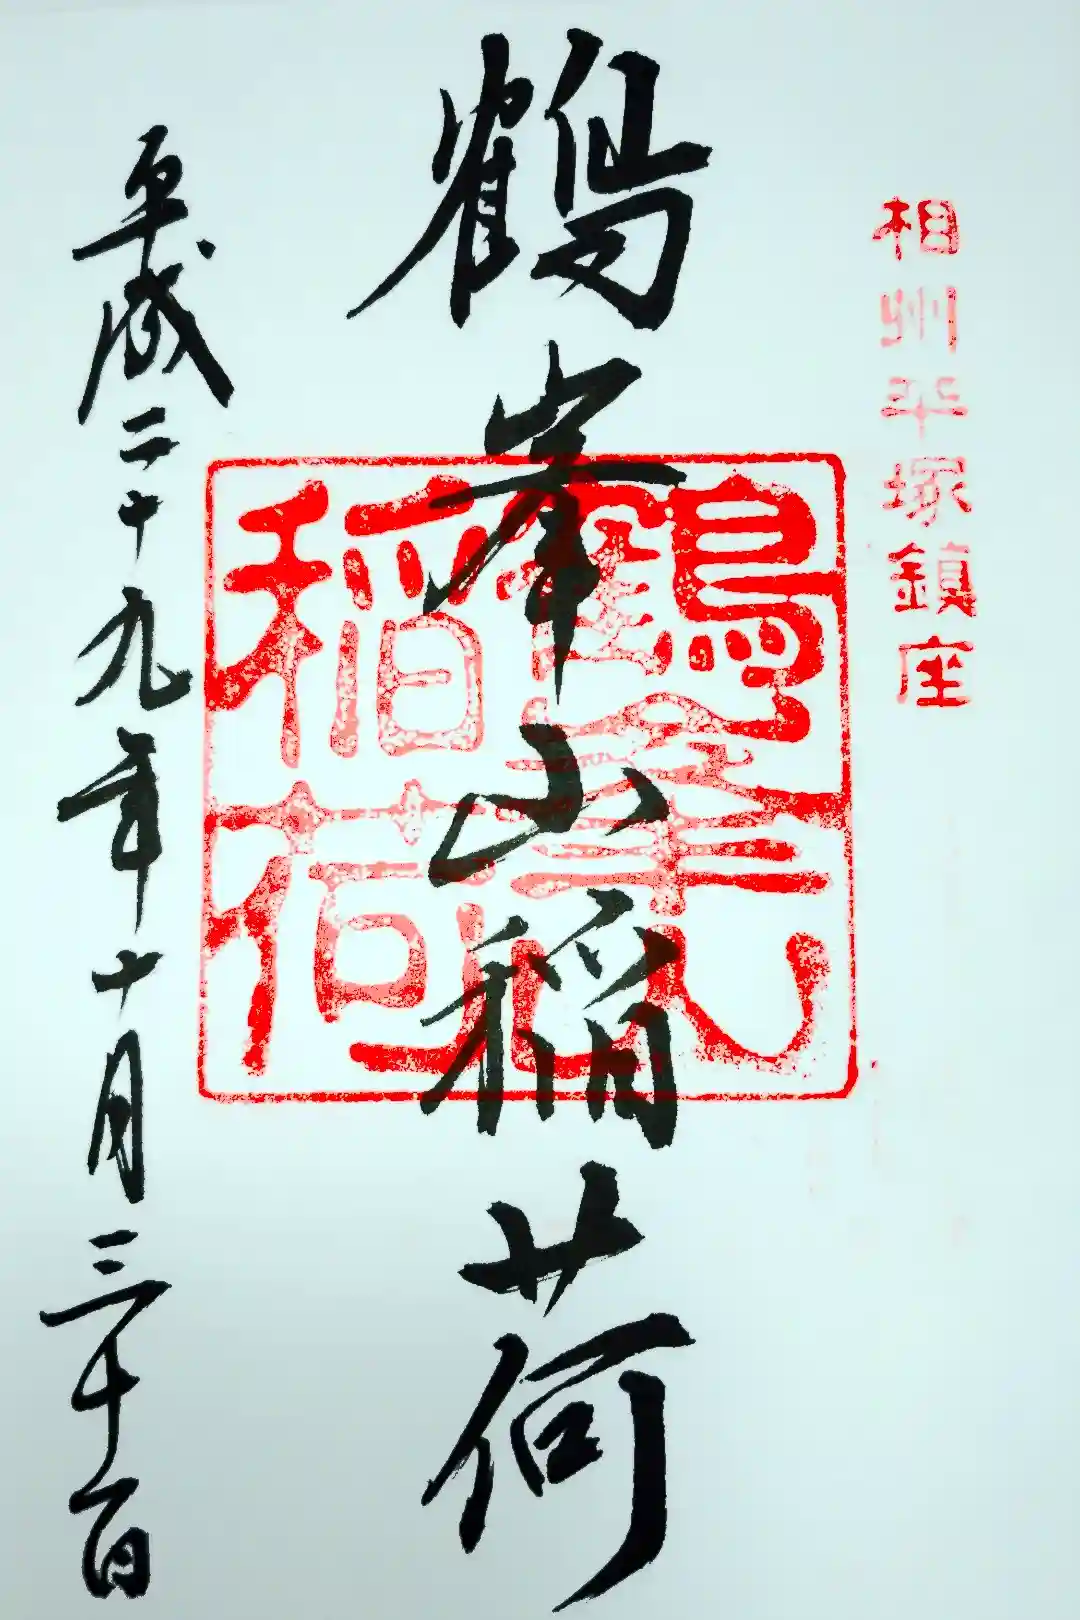 相州平塚鎮座
鶴峯山稲荷
鶴峯
稲荷
平成二十九年十月三十日